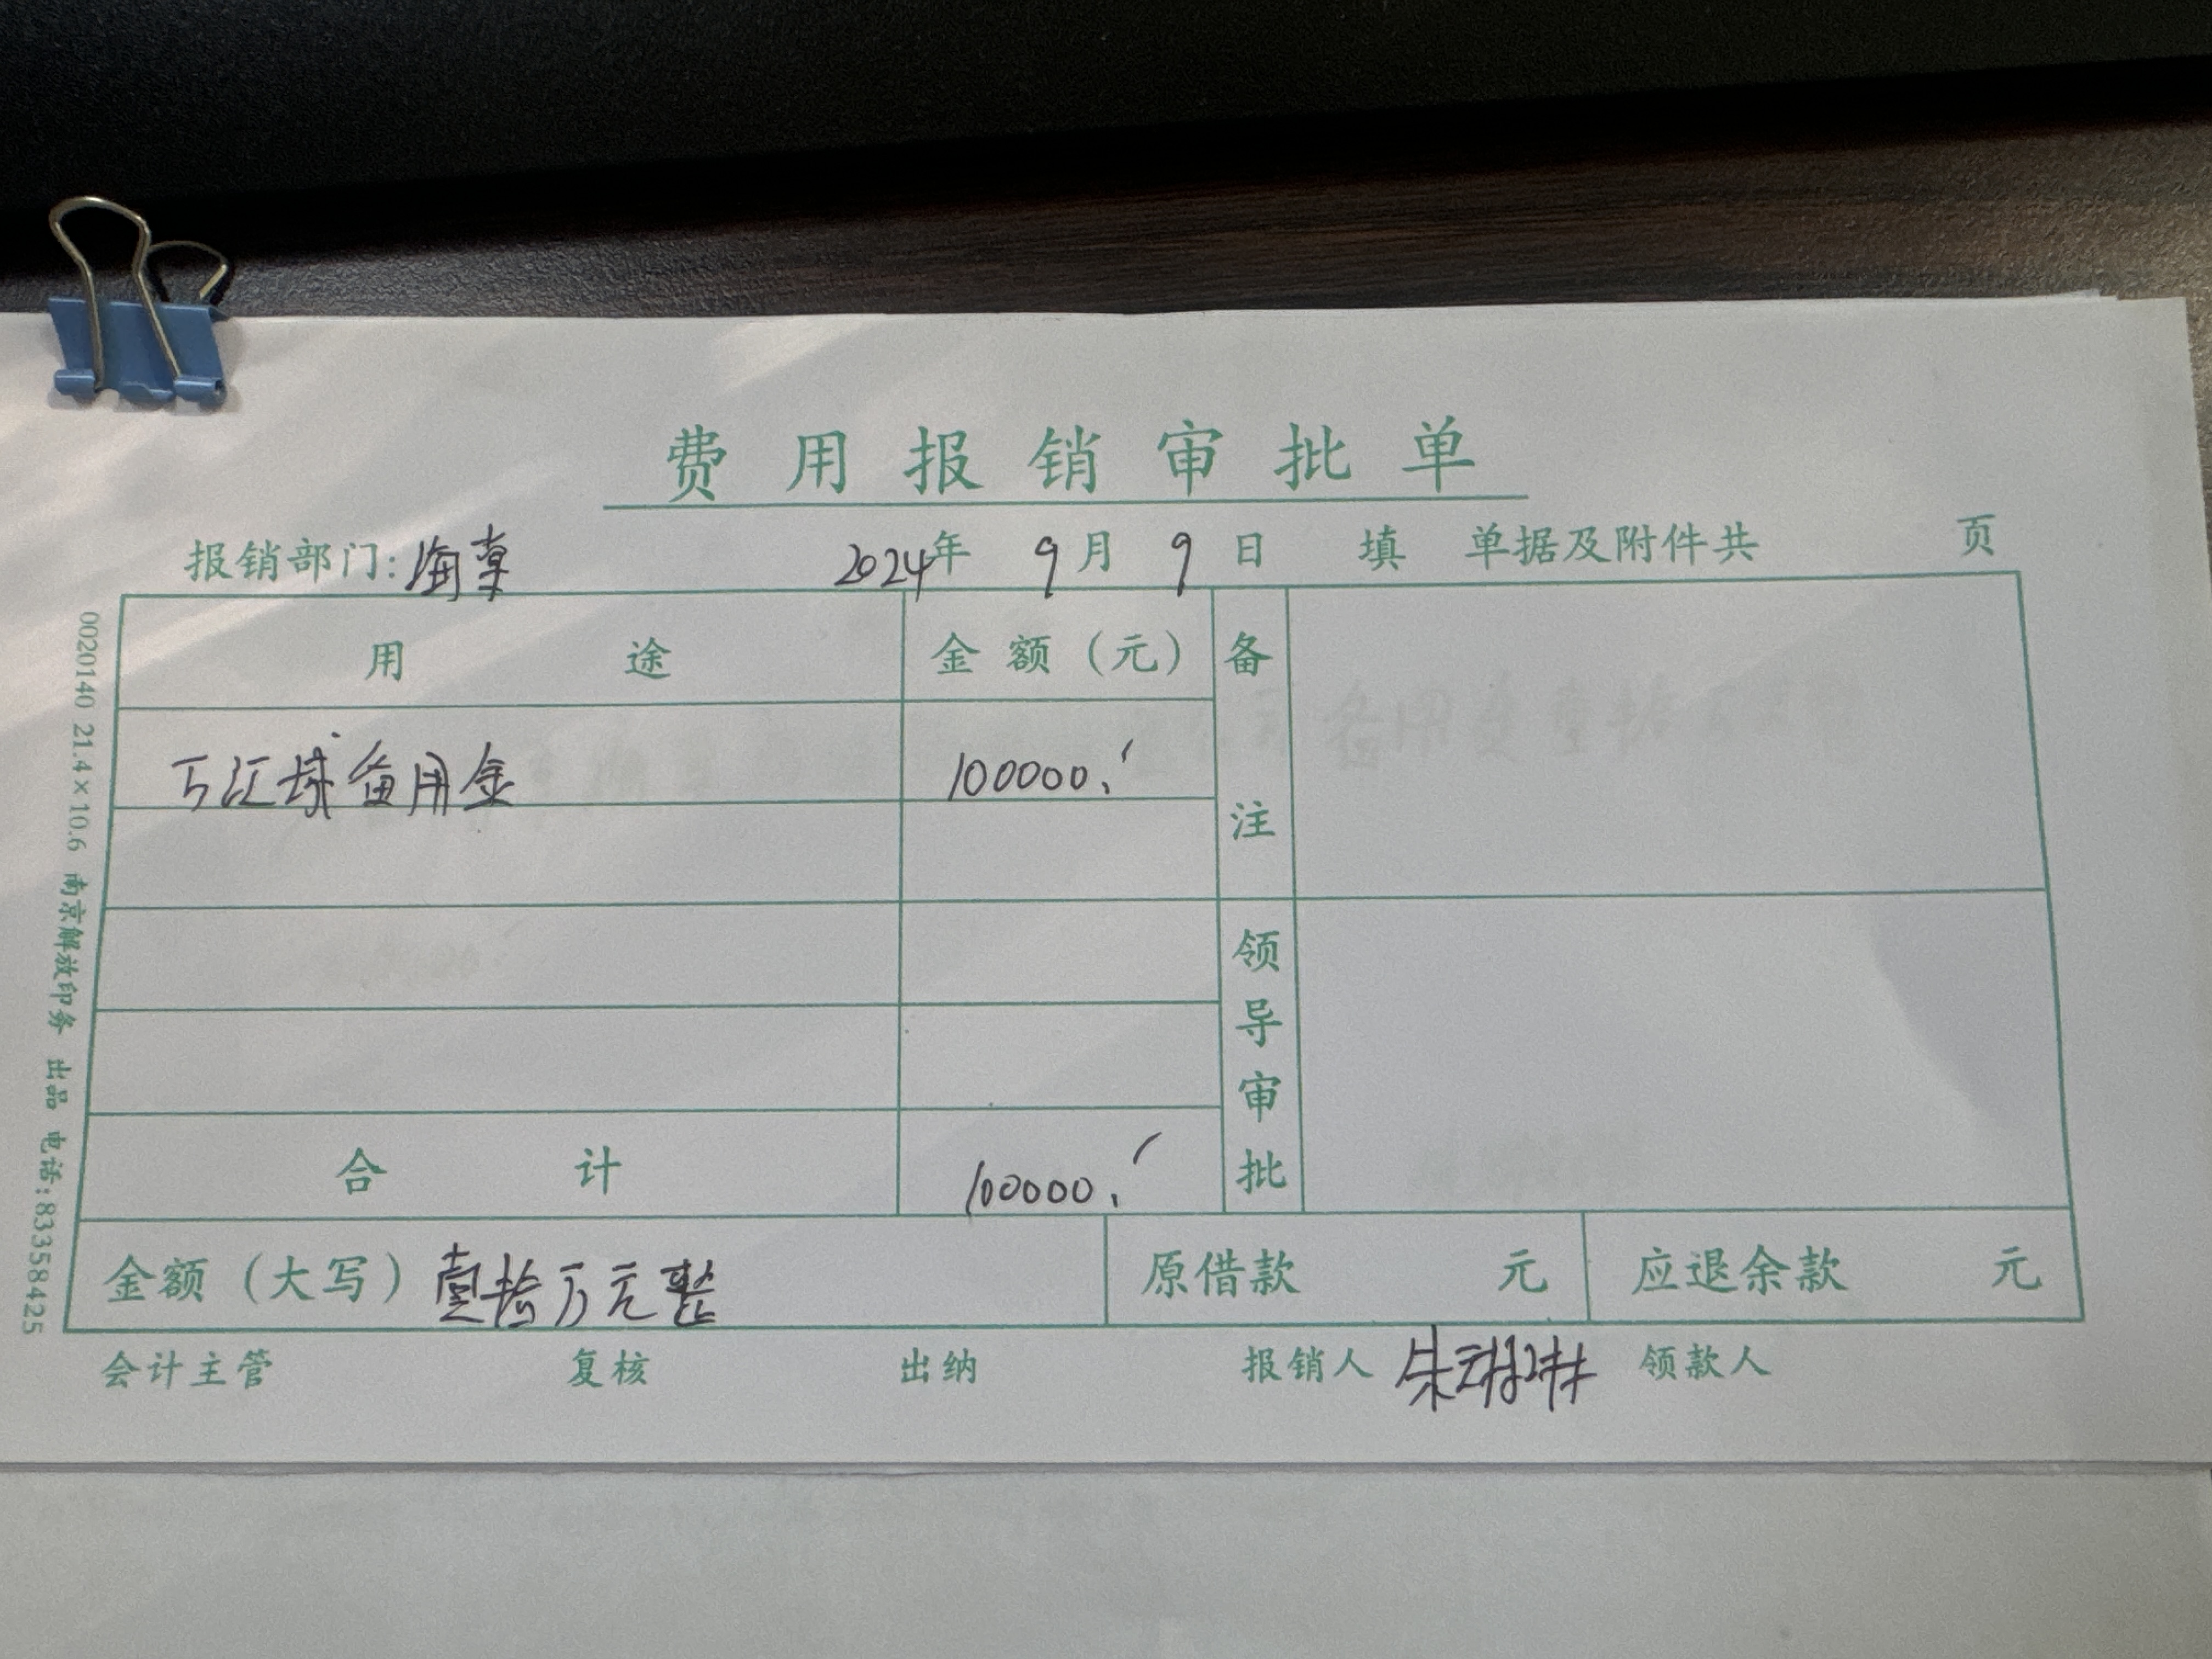 费用报销审批单
报销部门: 2024年 9月 9日 填 单据及附件共 页
用途 金额（元） 备注
备用金 100000.
领导审批
合计 100000.
金额（大写）壹拾万元整 原借款 元 应退余款 元
会计主管 复核 出纳 报销人 朱 领款人
0020140 21.4×10.6 南京解放印务 出品 电话:83358425